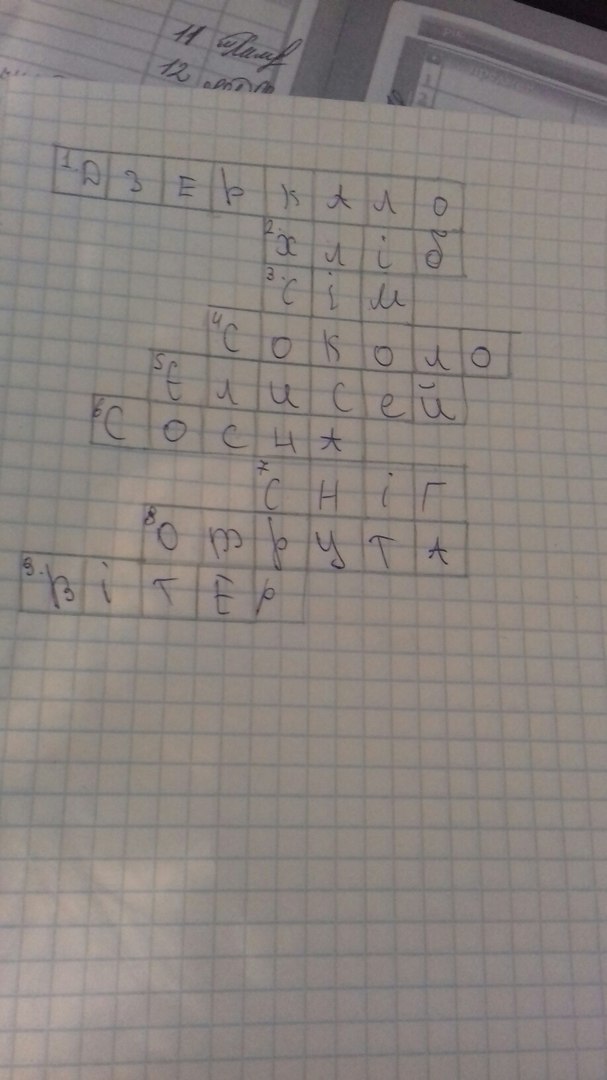 11
12
1. ДЗЕРКАЛО
2. хліб
3. сім
4 Соколо
5 Елисей
6 Сосна
7 СНіГ
8 Отрута
9. ВіТЕР